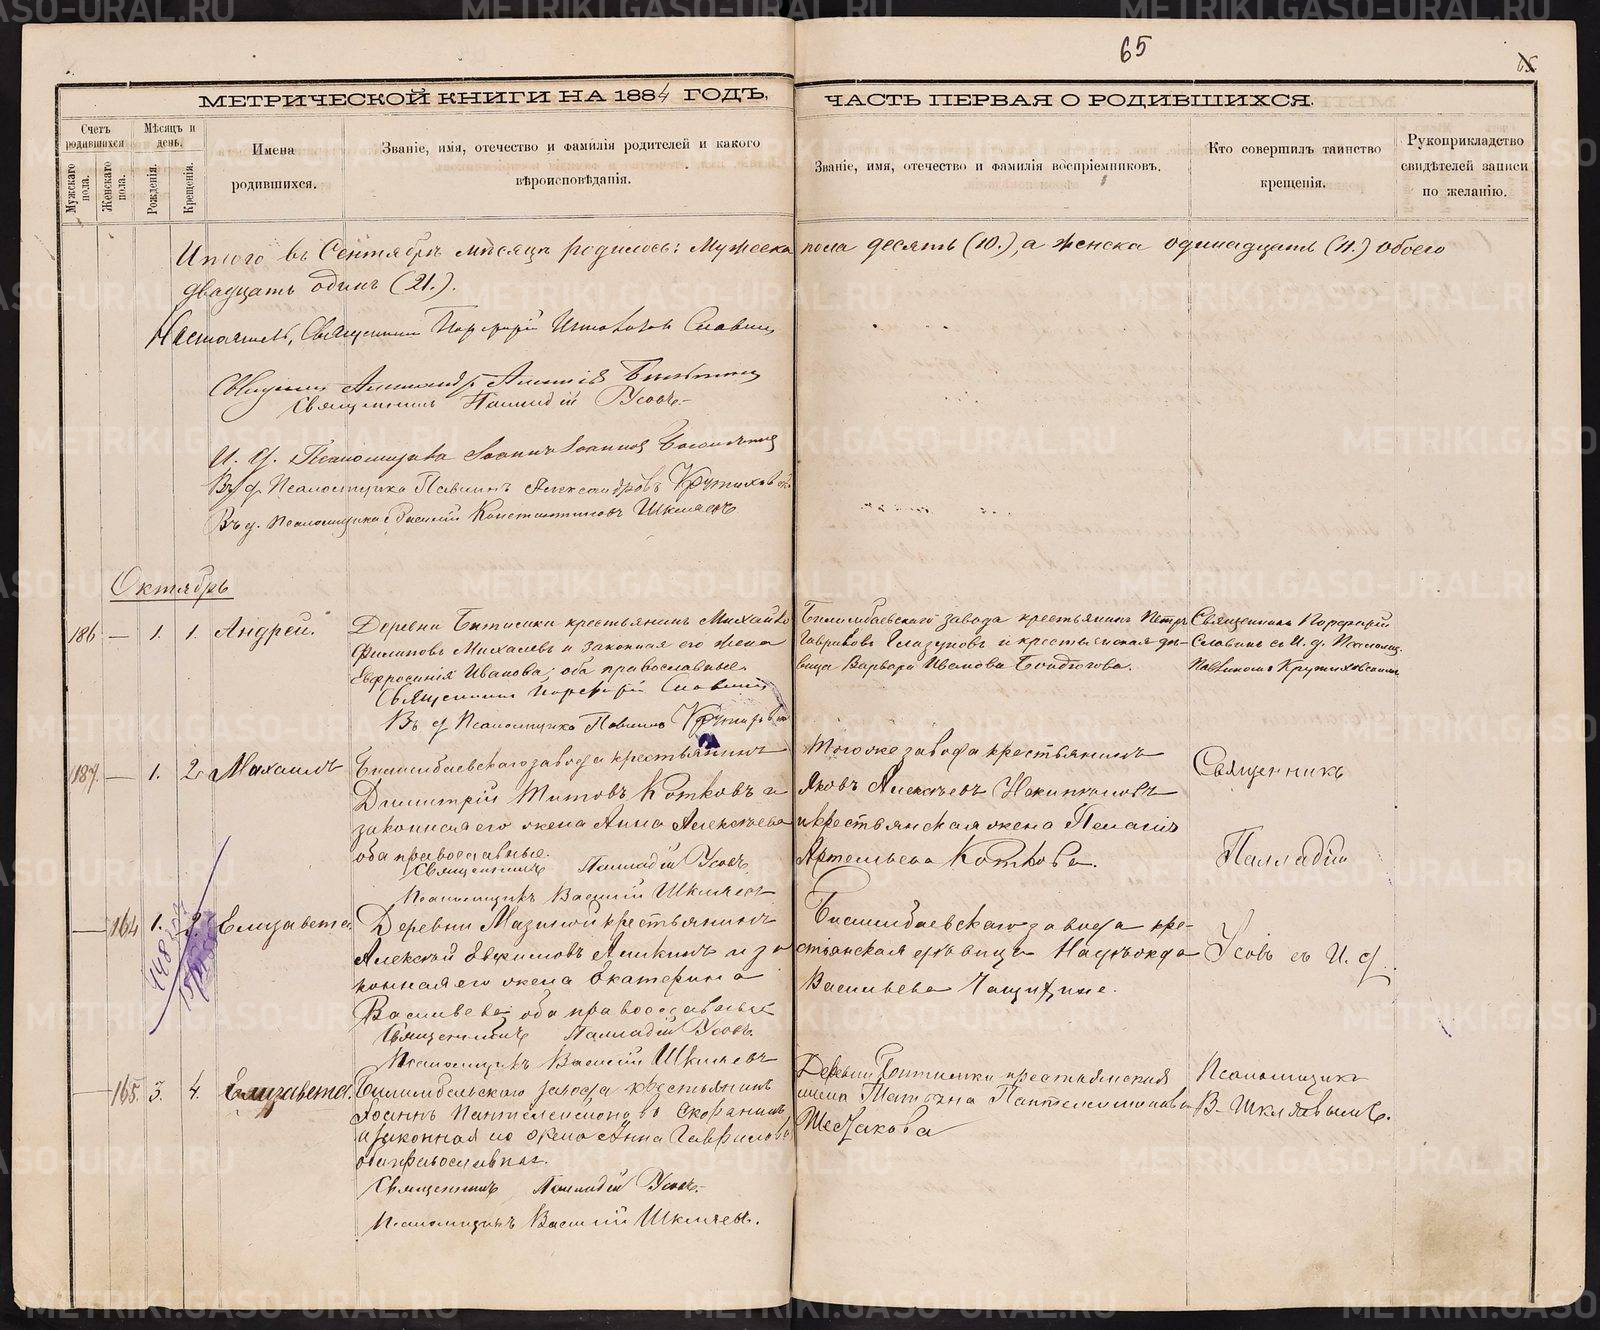 65
МЕТРИЧЕСКОЙ КНИГИ НА 1884 ГОДЪ,
ЧАСТЬ ПЕРВАЯ О РОДИВШИХСЯ.
Счетъ родившихся
Мѣсяцъ и день.
Имена родившихся.
Званіе, имя, отечество и фамилія родителей и какого вѣроисповѣданія.
Званіе, имя, отечество и фамилія воспріемниковъ.
Кто совершилъ таинство крещенія.
Рукоприкладство свидѣтелей записи по желанію.
Мужскаго пола.
Женскаго пола.
Рожденія.
Крещенія.
Итого въ Сентябрѣ мѣсяцѣ родилось: Мужеска пола десять (10.), а женска одинадцать (11.) обоего
двадцать одинъ (21.).
Настоятель, Священникъ Порфирій Славнин
Священникъ Александръ Алексіев
Священникъ Палладій Усовъ.
И. д. Псаломщика Іоаннъ Іоаннов
В. д. Псаломщика Павлинъ Александровъ Крутиховскій
В. д. псаломщика Василій Константиновъ Шкляевъ
Октябрь
186 — 1. 1. Андрей.
Деревни Битимки крестьянинъ Михаилъ
Филиповъ Михалевъ и законная его жена
Евфросинія Иванова; оба православные.
Священникъ Порфирій Славнинъ
В. д. Псаломщика Павлинъ Крутиховскій
Билимбаевскаго завода крестьянинъ Петръ
Гавриловъ Глазуновъ и крестьянская дѣ-
вица Варвара Иванова
Священникъ Порфирій
Славнинъ съ И. д. Псаломщ.
Павлиномъ Крутиховскимъ
187 — 1. 2. Михаилъ
Билимбаевскаго завода крестьянинъ
Димитрій Титовъ Котковъ и
законная его жена Анна Алексѣева
оба православные.
Священникъ Палладій Усовъ.
Псаломщикъ Василій Шкляевъ
Тогоже завода крестьянинъ
Яковъ Алексѣевъ
и крестьянская жена Пелагія
Артемьева Коткова.
Священникъ
Палладій
Усовъ съ И. д.
Псаломщик
В. Шкляевымъ.
— 164 1. 2. Елизавета.
148
Деревни Мазиной крестьянинъ
Алексѣй Евфимовъ Аликинъ и за-
конная его жена Екатерина
Васильева оба православные
Священникъ Палладій Усовъ.
Псаломщикъ Василій Шкляевъ
Билимбаевскаго завода кре-
стьянская дѣвица Надѣжда
Васильева
— 165. 3. 4. Елизавета.
Билимбаевскаго завода крестьянинъ
Іоаннъ Пантелеимоновъ
и законная его жена Анна Гаврилова
оба православные.
Священникъ Палладій Усовъ.
Псаломщикъ Василій Шкляевъ.
Деревни Битимки крестьянская
жена Татьяна Пантелеимонова